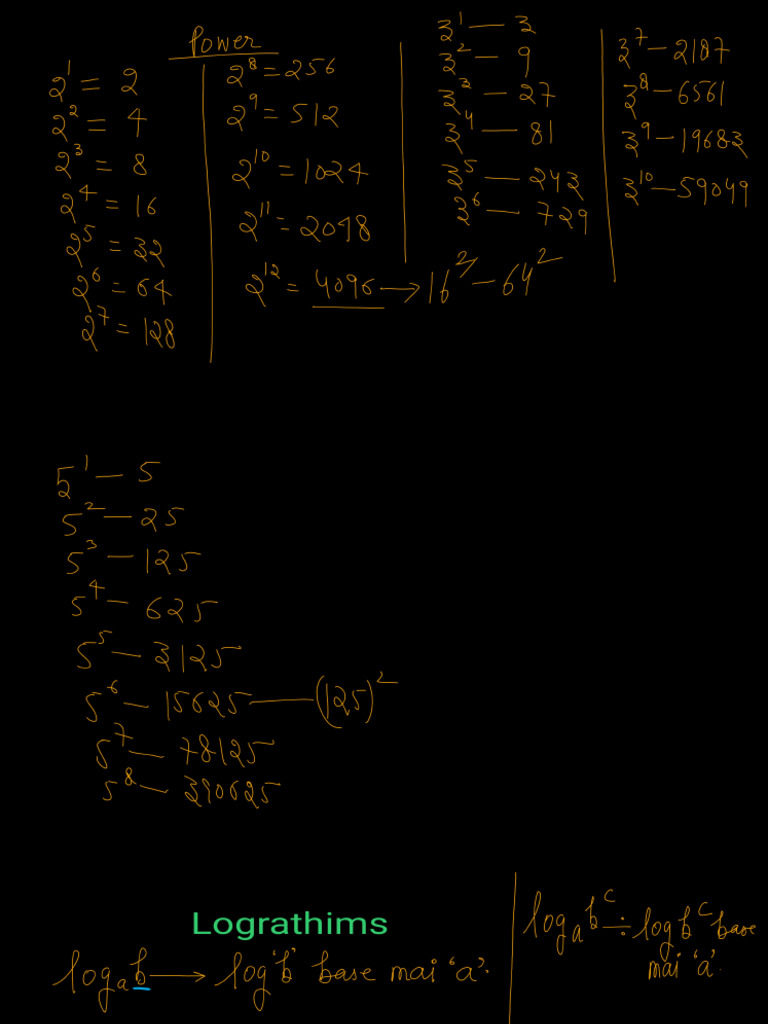 Power
2¹ = 2
2² = 4
2³ = 8
2⁴ = 16
2⁵ = 32
2⁶ = 64
2⁷ = 128
2⁸ = 256
2⁹ = 512
2¹⁰ = 1024
2¹¹ = 2048
2¹² = 4096 → 16² – 64²
3¹ — 3
3² — 9
3³ — 27
3⁴ — 81
3⁵ — 243
3⁶ — 729
3⁷ — 2187
3⁸ — 6561
3⁹ — 19683
3¹⁰ — 59049
5¹ — 5
5² — 25
5³ — 125
5⁴ — 625
5⁵ — 3125
5⁶ — 15625 — (125)²
5⁷ — 78125
5⁸ — 390625
Lograthims
logₐb → log 'b' base mai 'a'.
logₐbᶜ ÷ log bᶜ base
mai 'a'.